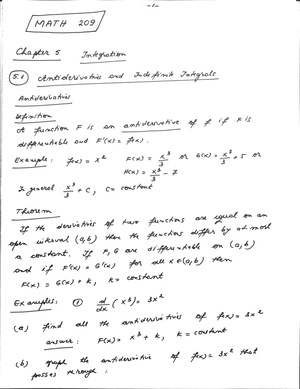 -1-
MATH 209
Chapter 5 Integration
5.1 Antiderivatives and Indefinite Integrals
Antiderivatives
Definition
A function F is an antiderivative of f if F is
differentiable and F'(x) = f(x).
Example: f(x) = x² F(x) = x³/3 or G(x) = x³/3 + 5 or
H(x) = x³/3 - 7
In general x³/3 + C, C = constant
Theorem
If the derivatives of two functions are equal on an
open interval (a,b) then the functions differ by at most
a constant. If F, G are differentiable on (a,b)
and if F'(x) = G'(x) for all x ∈ (a,b) then
F(x) = G(x) + k, k = constant
Examples: ① d/dx (x³) = 3x²
(a) find all the antiderivatives of f(x) = 3x²
answer: F(x) = x³ + k, k = constant
(b) graph the antiderivative of f(x) = 3x² that
passes through: